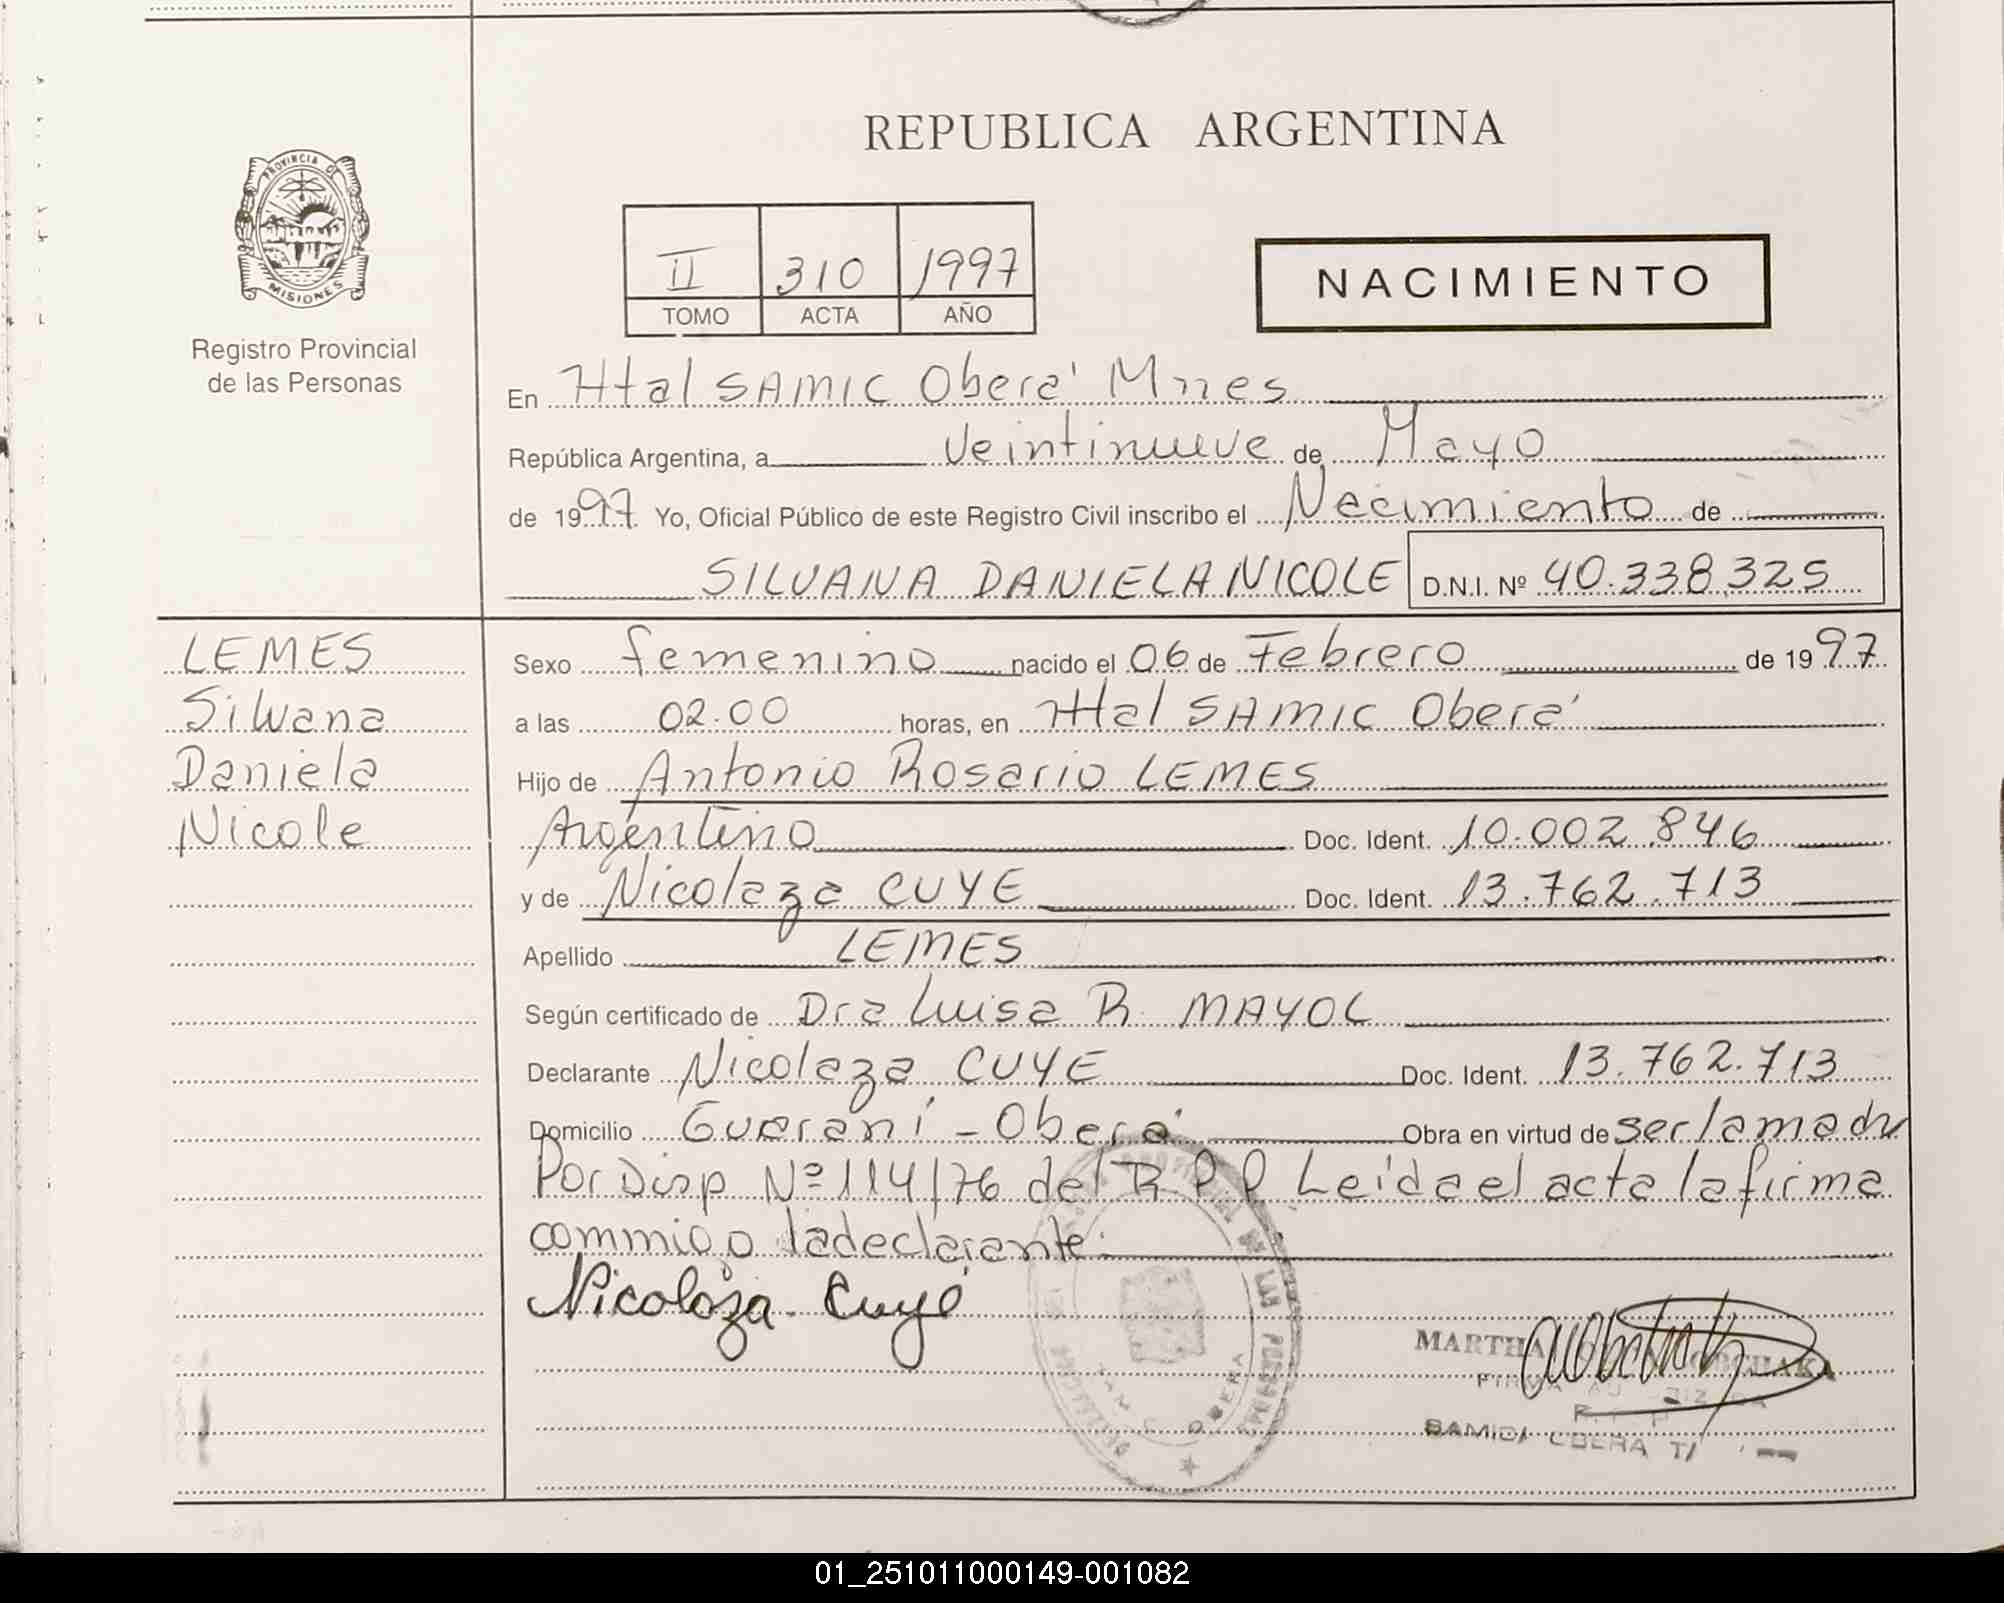 REPUBLICA ARGENTINA
PROVINCIA DE
MISIONES
Registro Provincial
de las Personas
II 310 1997
TOMO ACTA AÑO
NACIMIENTO
En Htal SAMIC Oberá Mnes
República Argentina, a veintinueve de Mayo
de 1997 Yo, Oficial Público de este Registro Civil inscribo el Nacimiento de
SILVANA DANIELA NICOLE D.N.I. Nº 40.338.325
LEMES
Silvana
Daniela
Nicole
Sexo femenino nacido el 06 de Febrero de 1997
a las 02.00 horas, en Htal SAMIC Oberá
Hijo de Antonio Rosario LEMES
Argentino Doc. Ident. 10.002.846
y de Nicolaza CUYE Doc. Ident. 13.762.713
Apellido LEMES
Según certificado de Dra Luisa R. MAYOL
Declarante Nicolaza CUYE Doc. Ident. 13.762.713
Domicilio Guaraní - Oberá Obra en virtud de ser la madre
Por Disp Nº 114/76 del R P P Leída el acta la firma
conmigo la declarante.
Nicolaza Cuyé
MARTHA
OBERA
01_251011000149-001082